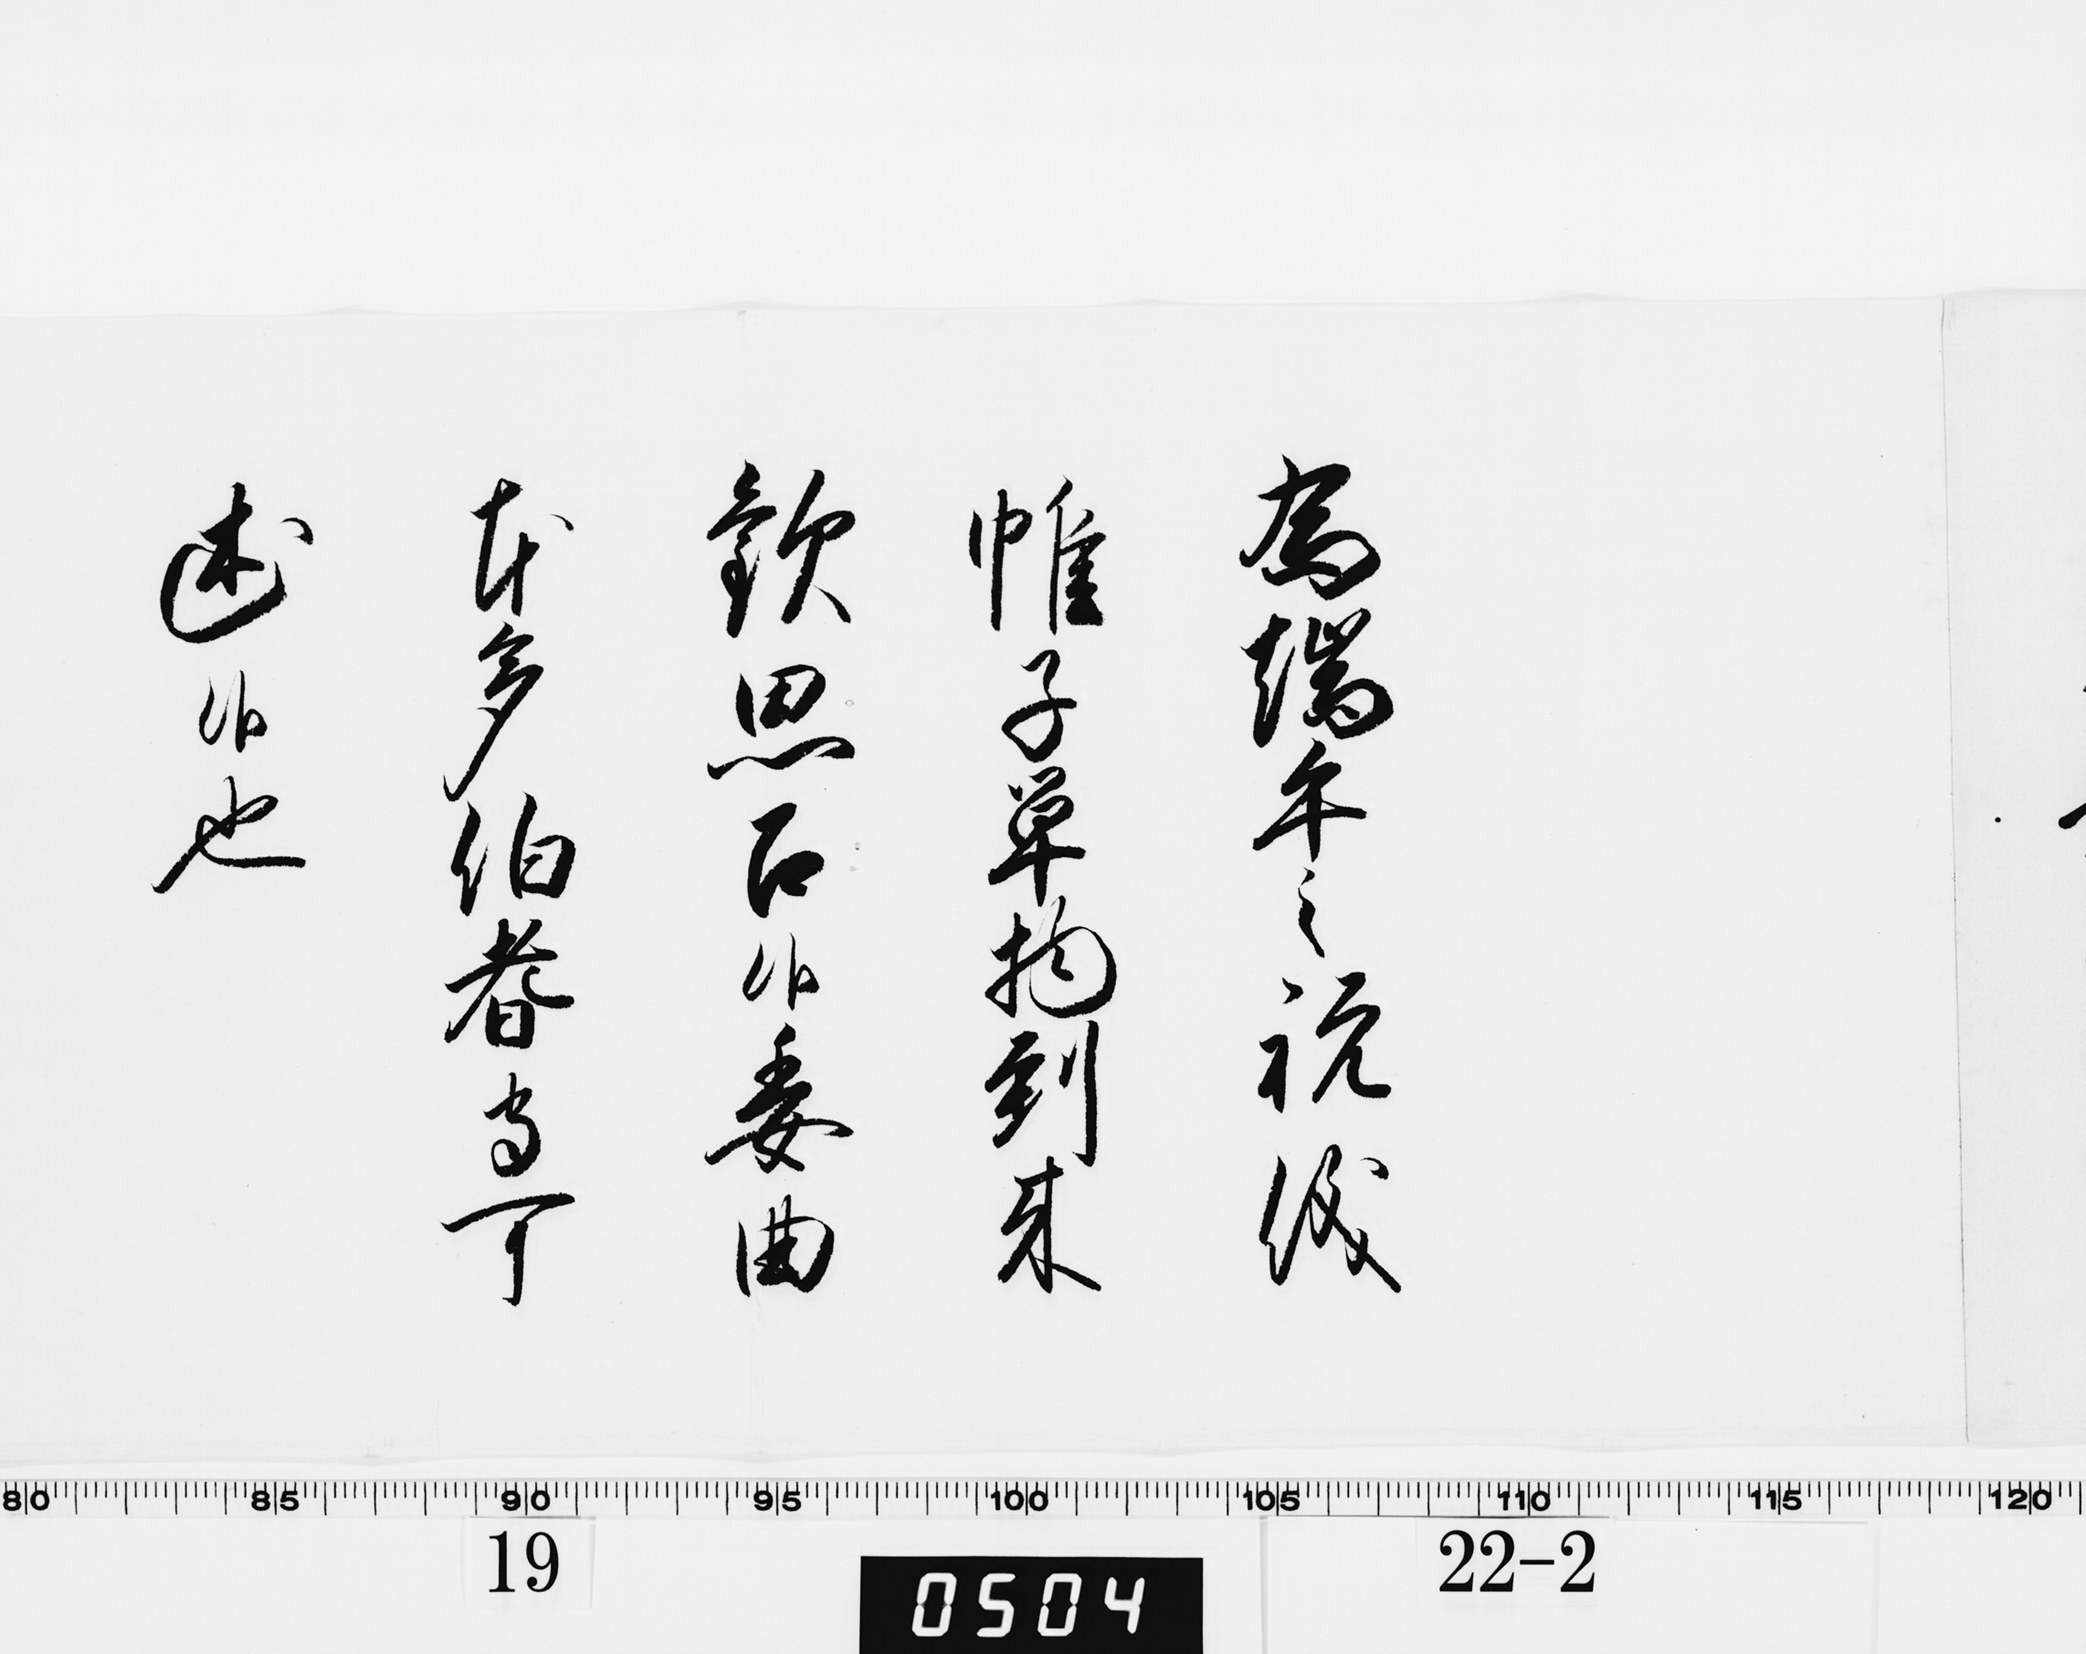 為端午之祝儀
帷子単物到来
歓思召候委曲
本多伯耆守可
述候也
80 85 90 95 100 105 110 115 120
19
0504
22-2